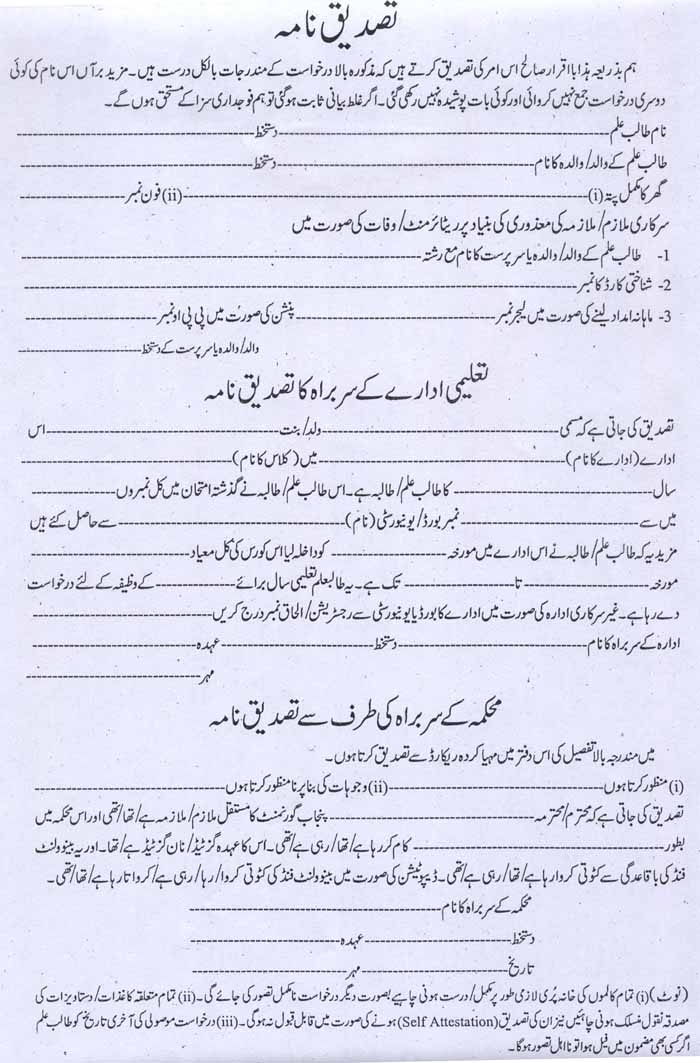 تصدیق نامہ
ہم بذریعہ ہذا بااقرار صالح اس امر کی تصدیق کرتے ہیں کہ مذکورہ بالا درخواست کے مندرجات بالکل درست ہیں۔ مزید برآں اس نام کی کوئی
دوسری درخواست جمع نہیں کروائی اور کوئی بات پوشیدہ نہیں رکھی گئی۔ اگر غلط بیانی ثابت ہوگئی تو ہم فوجداری سزا کے مستحق ہوں گے۔
نام طالب علم--------------------دستخط--------------------
طالب علم کے والد/والدہ کا نام--------------------دستخط--------------------
گھر کا مکمل پتہ (i)--------------------(ii) فون نمبر--------------------
سرکاری ملازم/ملازمہ کی معذوری کی بنیاد پر ریٹائرمنٹ/وفات کی صورت میں
1- طالب علم کے والد/والدہ یا سرپرست کا نام مع رشتہ--------------------
2- شناختی کارڈ کا نمبر--------------------
3- ماہانہ امداد لینے کی صورت میں لیجر نمبر--------------------پنشن کی صورت میں پی پی او نمبر--------------------
والد/والدہ یا سرپرست کے دستخط--------------------
تعلیمی ادارے کے سربراہ کا تصدیق نامہ
تصدیق کی جاتی ہے کہ مسمی--------------------ولد/بنت--------------------اس
ادارے (ادارے کا نام)--------------------میں (کلاس کا نام)--------------------
سال--------------------کا طالب علم/طالبہ ہے۔ اس طالب علم/طالبہ نے گذشتہ امتحان میں کل نمبروں--------------------
میں سے--------------------نمبر بورڈ/یونیورسٹی (نام)--------------------سے حاصل کئے ہیں
مزید یہ کہ طالب علم/طالبہ نے اس ادارے میں مورخہ--------------------کو داخلہ لیا اس کورس کی کل معیاد--------------------
مورخہ--------------------تا--------------------تک ہے۔ یہ طالبعلم تعلیمی سال برائے--------------------کے وظیفہ کے لئے درخواست
دے رہا ہے۔ غیر سرکاری ادارہ کی صورت میں ادارے کا بورڈ یا یونیورسٹی سے رجسٹریشن/الحاق نمبر درج کریں--------------------
ادارہ کے سربراہ کا نام--------------------دستخط--------------------عہدہ--------------------
مہر--------------------
محکمہ کے سربراہ کی طرف سے تصدیق نامہ
میں مندرجہ بالا تفصیل کی اس دفتر میں مہیا کردہ ریکارڈ سے تصدیق کرتا ہوں۔
(i) منظور کرتا ہوں--------------------(ii) وجوہات کی بنا پر نا منظور کرتا ہوں--------------------
تصدیق کی جاتی ہے کہ محترم/محترمہ--------------------پنجاب گورنمنٹ کا مستقل ملازم/ملازمہ ہے/تھا/تھی اور اس محکمہ میں
بطور--------------------کام کر رہا ہے/تھا/رہی ہے/تھی۔ اس کا عہدہ گزٹیڈ/نان گزٹیڈ ہے/تھا۔ اور یہ بینوولنٹ
فنڈ کی باقاعدگی سے کٹوتی کروا رہا ہے/تھا/رہی ہے/تھی۔ ڈیپوٹیشن کی صورت میں بینوولنٹ فنڈ کی کٹوتی کروا/رہا/رہی ہے/کرواتا رہا ہے/تھا/تھی۔
محکمہ کے سربراہ کا نام--------------------
دستخط--------------------عہدہ--------------------
تاریخ--------------------مہر--------------------
(نوٹ) (i) تمام کالموں کی خانہ پُری لازمی طور پر مکمل/درست ہونی چاہیے بصورت دیگر درخواست نامکمل تصور کی جائے گی۔ (ii) تمام متعلقہ کاغذات/دستاویزات کی
مصدقہ نقول منسلک ہونی چاہئیں نیز ان کی تصدیق (Self Attestation) ہونے کی صورت میں قابل قبول نہ ہوگی۔ (iii) درخواست موصولی کی آخری تاریخ کو طالب علم
اگر کسی بھی مضمون میں فیل ہوا تو نا اہل تصور ہوگا۔